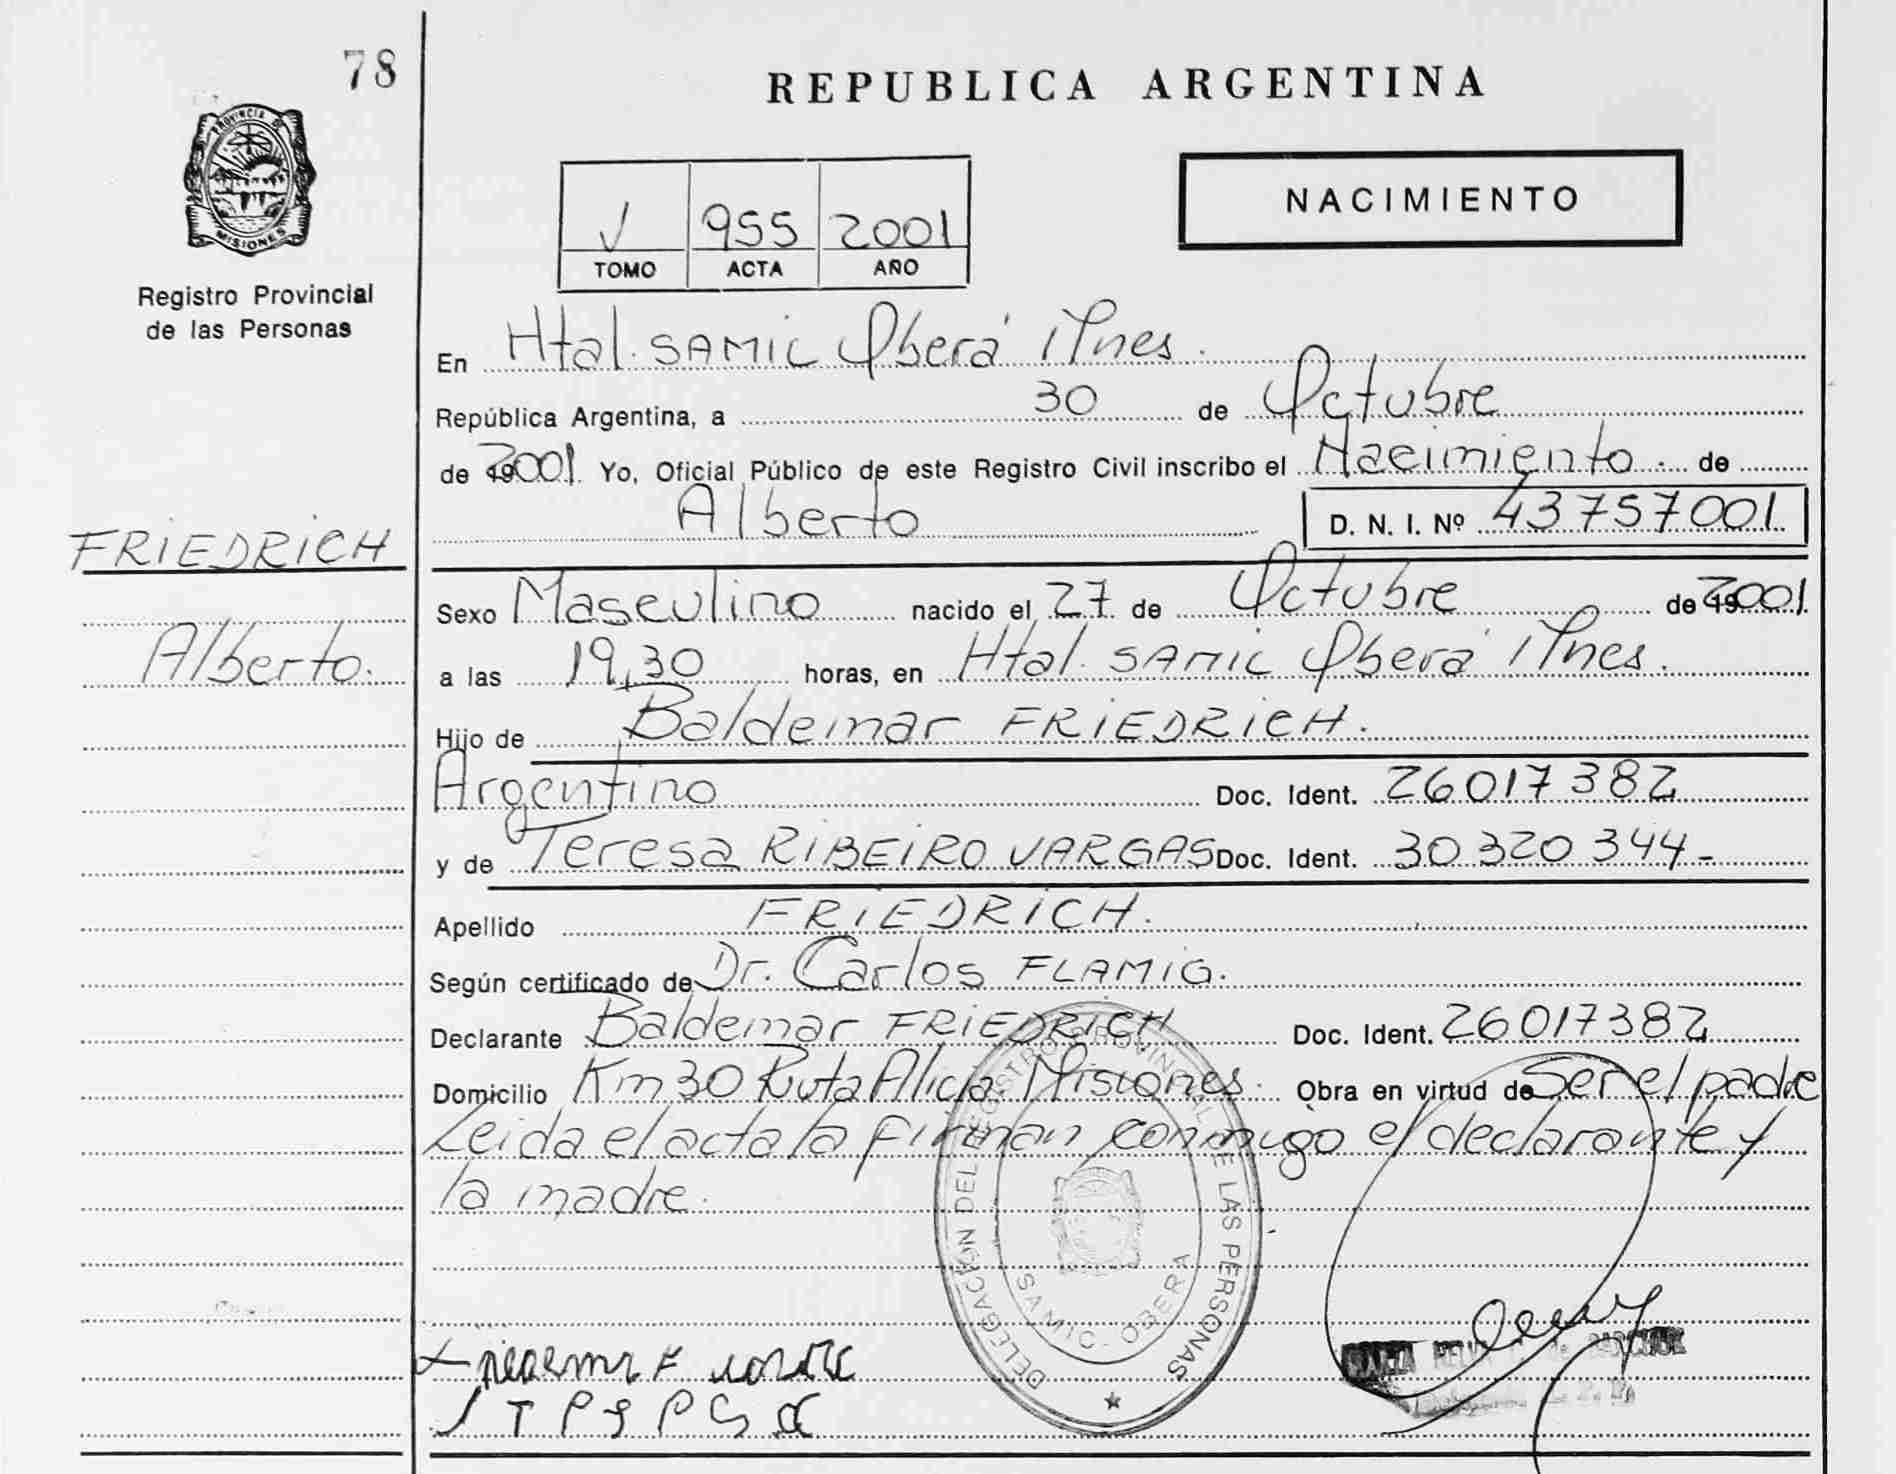 78
REPUBLICA ARGENTINA
PROVINCIA DE
MISIONES
Registro Provincial
de las Personas
955 2001
TOMO ACTA AÑO
NACIMIENTO
En Htal. SAMIC Oberá Mnes.
República Argentina, a 30 de Octubre
de 2001 Yo, Oficial Público de este Registro Civil inscribo el Nacimiento de
Alberto D. N. I. Nº 43757001
FRIEDRICH
Alberto.
Sexo Masculino nacido el 27 de Octubre de 2001
a las 19,30 horas, en Htal. SAMIC Oberá Mnes.
Hijo de Baldemar FRIEDRICH.
Argentino Doc. Ident. 26017382
y de Teresa RIBEIRO VARGAS Doc. Ident. 30320344-
Apellido FRIEDRICH.
Según certificado de Dr. Carlos FLAMIG.
Declarante Baldemar FRIEDRICH Doc. Ident. 26017382
Domicilio Km 30 Ruta Alicia Misiones. Obra en virtud de Ser el padre
Leida el acta la firman conmigo el declarante y
la madre.
DELEGACION DEL REGISTRO PROVINCIAL DE LAS PERSONAS
SAMIC - OBERA